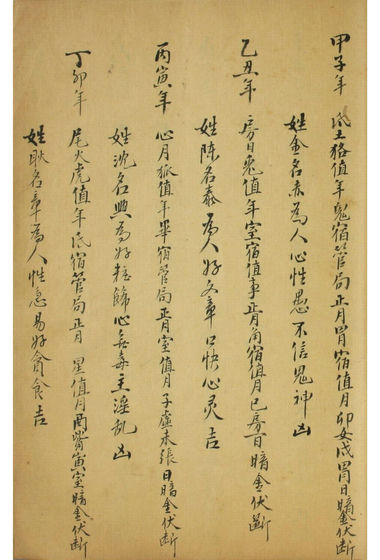 甲子年 氐土狢值年鬼宿管局正月胃宿值月卯女戌胃日暗金伏断
姓金名赤為人心性愚不信鬼神凶
乙丑年 房日兎值年室宿值事正月角宿值月巳房日暗金伏断
姓陈名泰為人好文章口快心灵吉
丙寅年 心月狐值年畢宿管局正月室值月子虚未張日暗金伏断
姓沈名興為好粧飾心無毒主淫乱凶
丁卯年 尾火虎值年氐宿管局正月星值月酉觜寅室暗金伏断
姓耿名章為人性急易好貪食吉